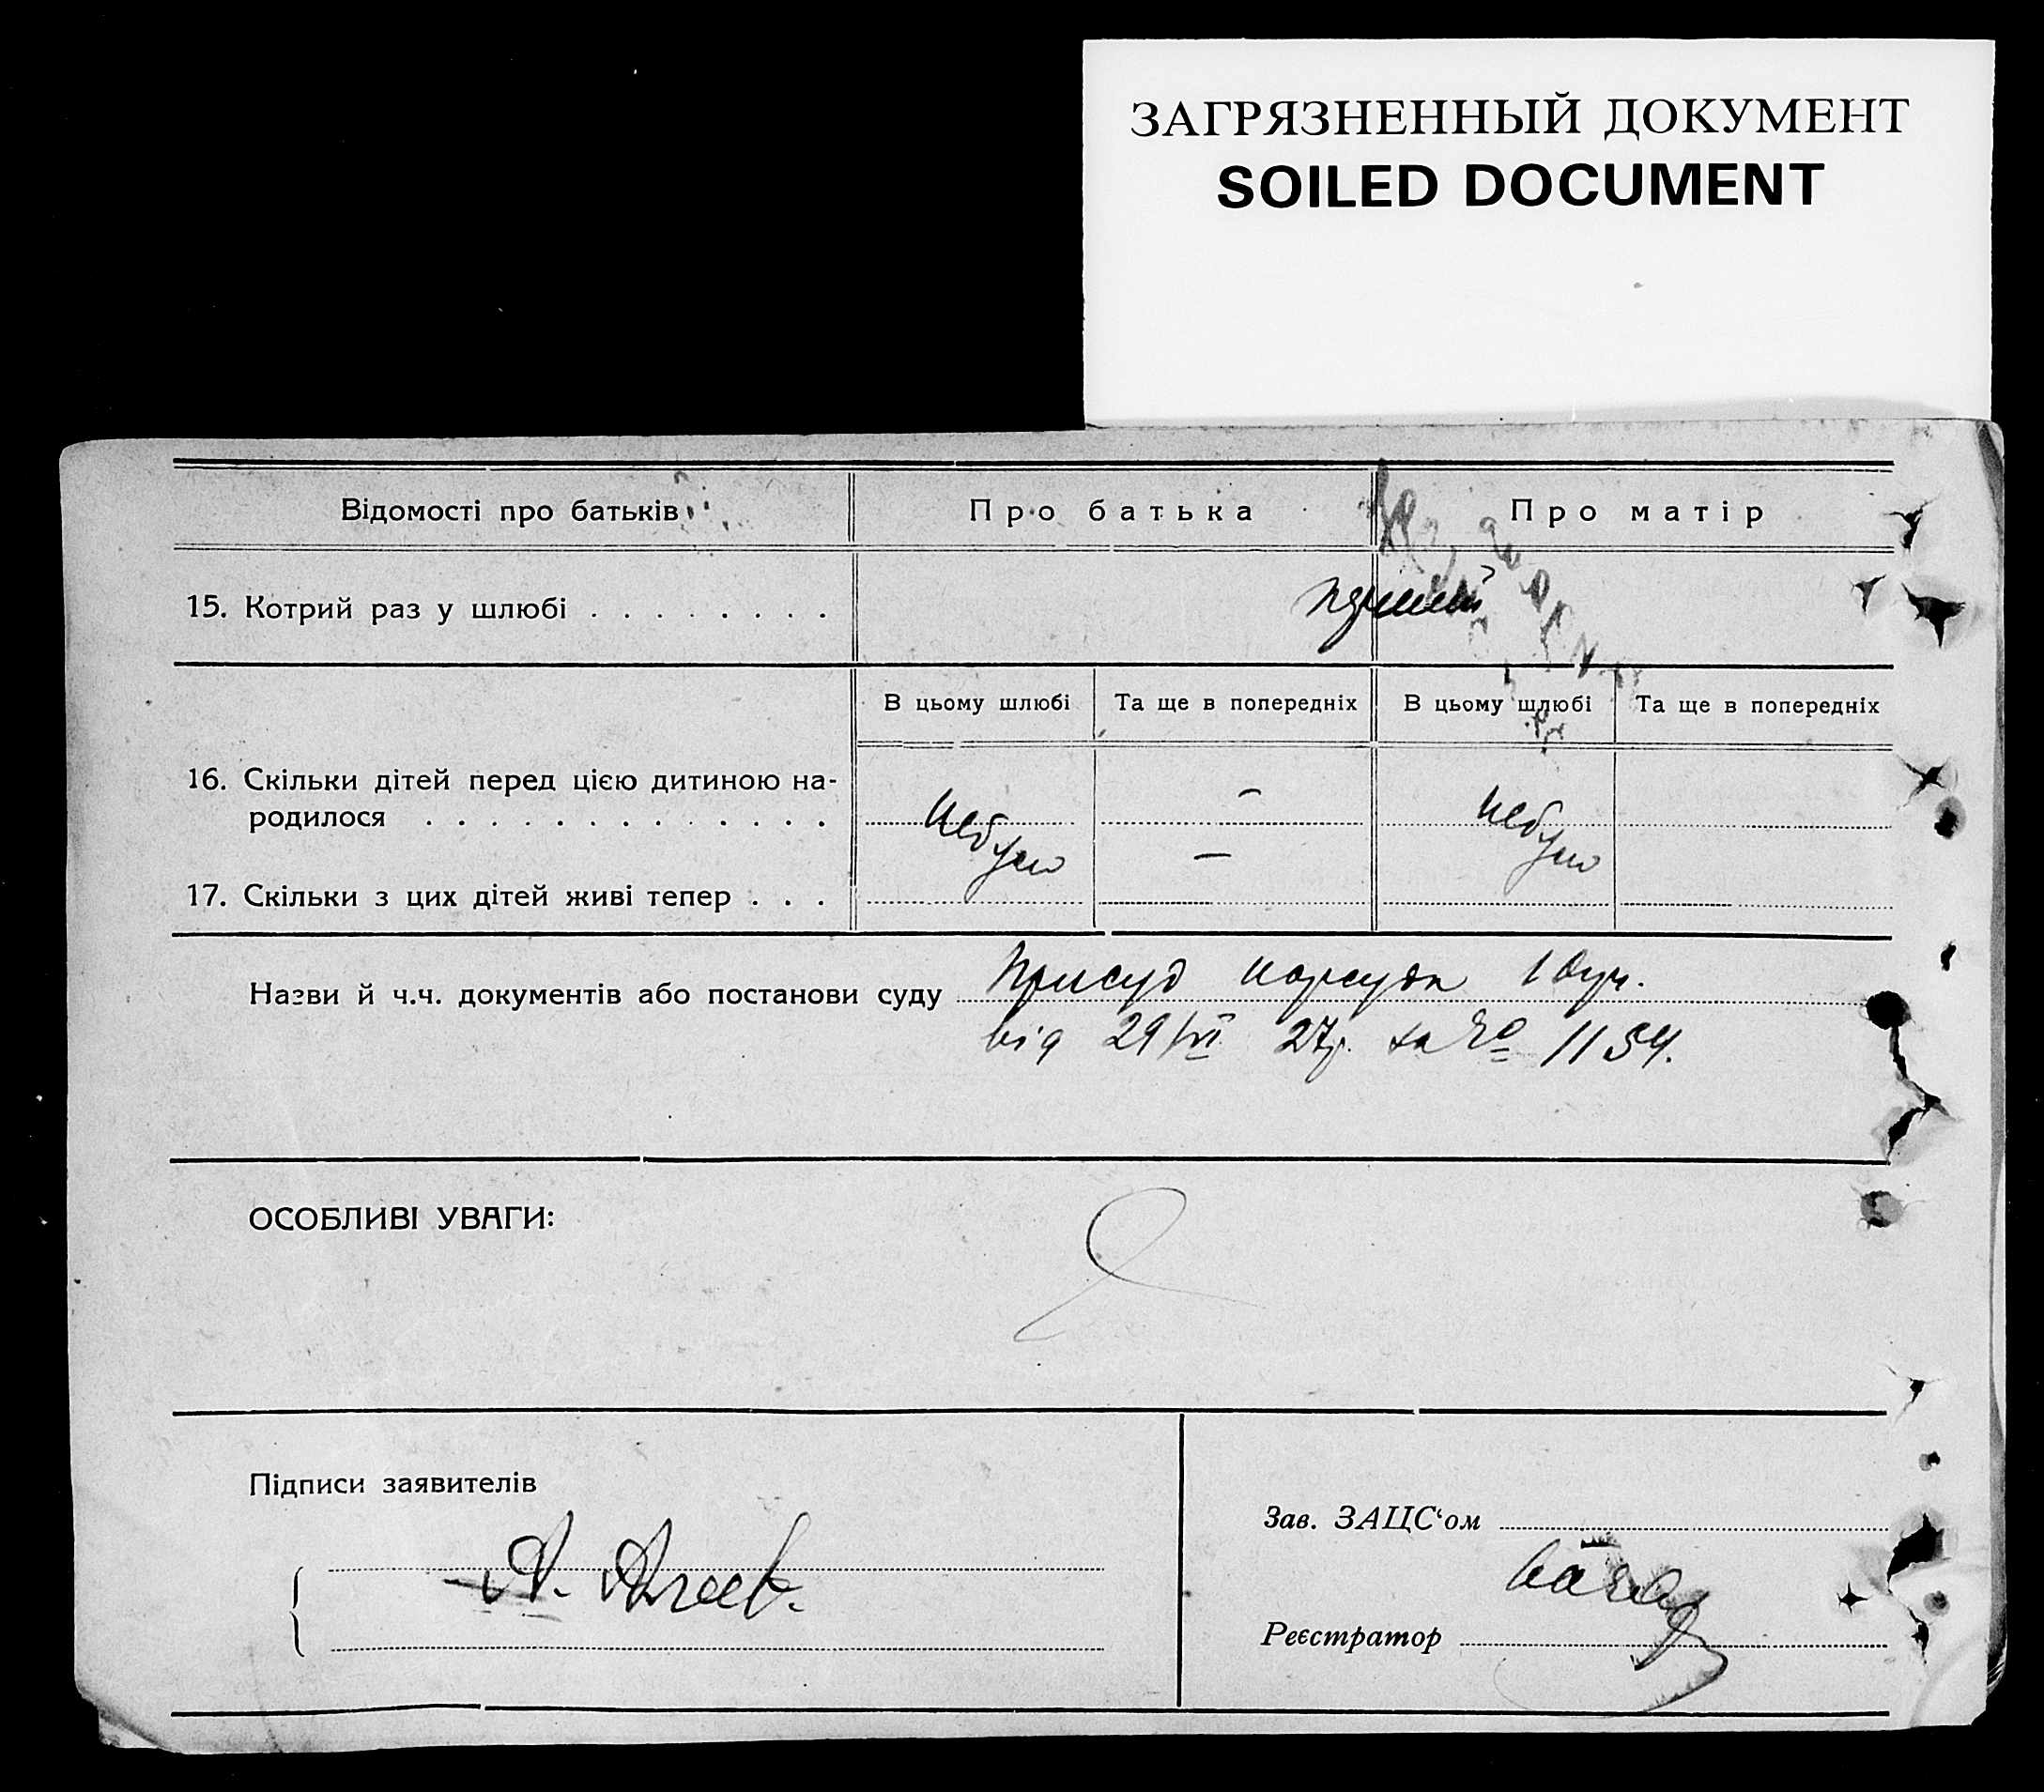 ЗАГРЯЗНЕННЫЙ ДОКУМЕНТ
SOILED DOCUMENT
Відомості про батьків
Про батька
Про матір
15. Котрий раз у шлюбі . . . . . . . .
В цьому шлюбі
Та ще в попередніх
В цьому шлюбі
Та ще в попередніх
16. Скільки дітей перед цією дитиною на-
родилося . . . . . . . . . . . . .
—
17. Скільки з цих дітей живі тепер . . .
—
Назви й ч.ч. документів або постанови суду Присуд нарсуда 1
від 29/VI 27р. за № 1154.
ОСОБЛИВІ УВАГИ:
Підписи заявителів
Зав. ЗАЦС‘ом
А. Агеев.
Реєстратор